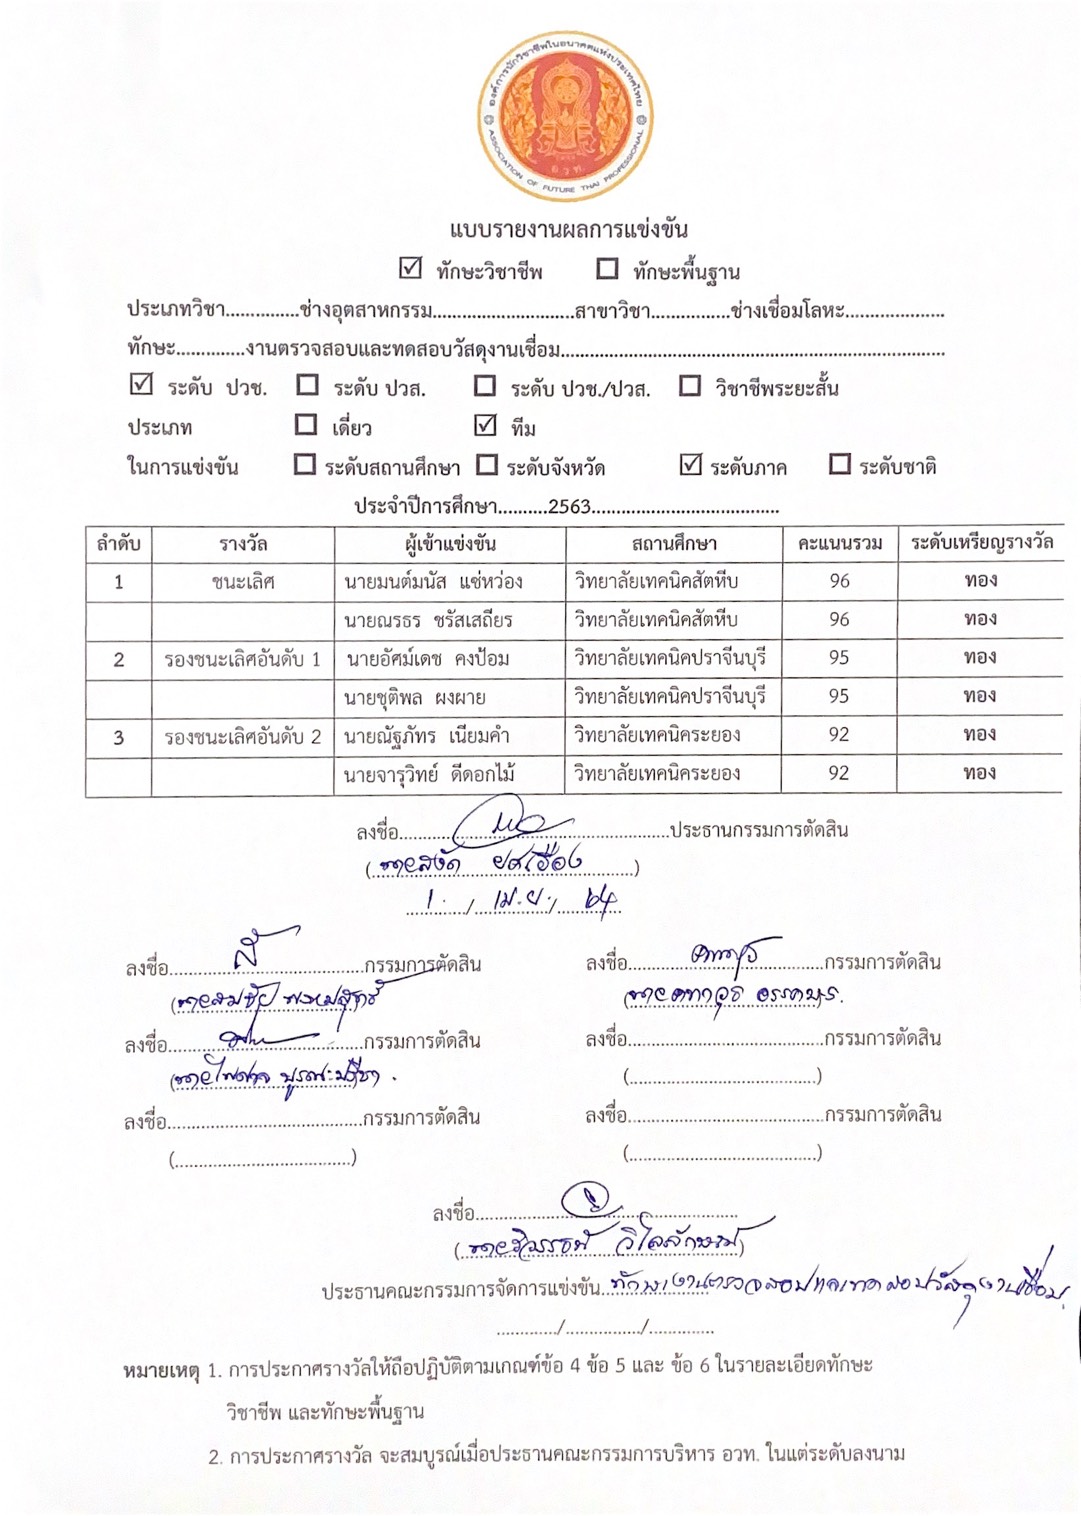 องค์การนักวิชาชีพในอนาคตแห่งประเทศไทย
อวท.
ASSOCIATION OF FUTURE THAI PROFESSIONAL
แบบรายงานผลการแข่งขัน
☑ ทักษะวิชาชีพ ☐ ทักษะพื้นฐาน
ประเภทวิชา...............ช่างอุตสาหกรรม.............................สาขาวิชา................ช่างเชื่อมโลหะ....................
ทักษะ..............งานตรวจสอบและทดสอบวัสดุงานเชื่อม..............................................................................
☑ ระดับ ปวช. ☐ ระดับ ปวส. ☐ ระดับ ปวช./ปวส. ☐ วิชาชีพระยะสั้น
ประเภท ☐ เดี่ยว ☑ ทีม
ในการแข่งขัน ☐ ระดับสถานศึกษา ☐ ระดับจังหวัด ☑ ระดับภาค ☐ ระดับชาติ
ประจำปีการศึกษา..........2563......................................
ลำดับ รางวัล ผู้เข้าแข่งขัน สถานศึกษา คะแนนรวม ระดับเหรียญรางวัล
1 ชนะเลิศ นายมนต์มนัส แซ่หว่อง วิทยาลัยเทคนิคสัตหีบ 96 ทอง
นายณรธร ชรัสเสถียร วิทยาลัยเทคนิคสัตหีบ 96 ทอง
2 รองชนะเลิศอันดับ 1 นายอัศม์เดช คงป้อม วิทยาลัยเทคนิคปราจีนบุรี 95 ทอง
นายชุติพล ผงผาย วิทยาลัยเทคนิคปราจีนบุรี 95 ทอง
3 รองชนะเลิศอันดับ 2 นายณัฐภัทร เนียมคำ วิทยาลัยเทคนิคระยอง 92 ทอง
นายจารุวิทย์ ดีดอกไม้ วิทยาลัยเทคนิคระยอง 92 ทอง
ลงชื่อ......................................................ประธานกรรมการตัดสิน
(นายสงัด ยศเรือง)
1 / เม.ย. / 64
ลงชื่อ.......................................กรรมการตัดสิน ลงชื่อ.......................................กรรมการตัดสิน
(นายสมชัย (นายคทาวุธ
ลงชื่อ.......................................กรรมการตัดสิน ลงชื่อ.......................................กรรมการตัดสิน
(นายไพศาล (......................................)
ลงชื่อ.......................................กรรมการตัดสิน ลงชื่อ.......................................กรรมการตัดสิน
(...................................) (......................................)
ลงชื่อ.....................................................
(นาย วิไลลักษณ์)
ประธานคณะกรรมการจัดการแข่งขัน ทักษะงานตรวจสอบและทดสอบวัสดุงานเชื่อม
............/.............../.............
หมายเหตุ 1. การประกาศรางวัลให้ถือปฏิบัติตามเกณฑ์ข้อ 4 ข้อ 5 และ ข้อ 6 ในรายละเอียดทักษะ
วิชาชีพ และทักษะพื้นฐาน
2. การประกาศรางวัล จะสมบูรณ์เมื่อประธานคณะกรรมการบริหาร อวท. ในแต่ระดับลงนาม